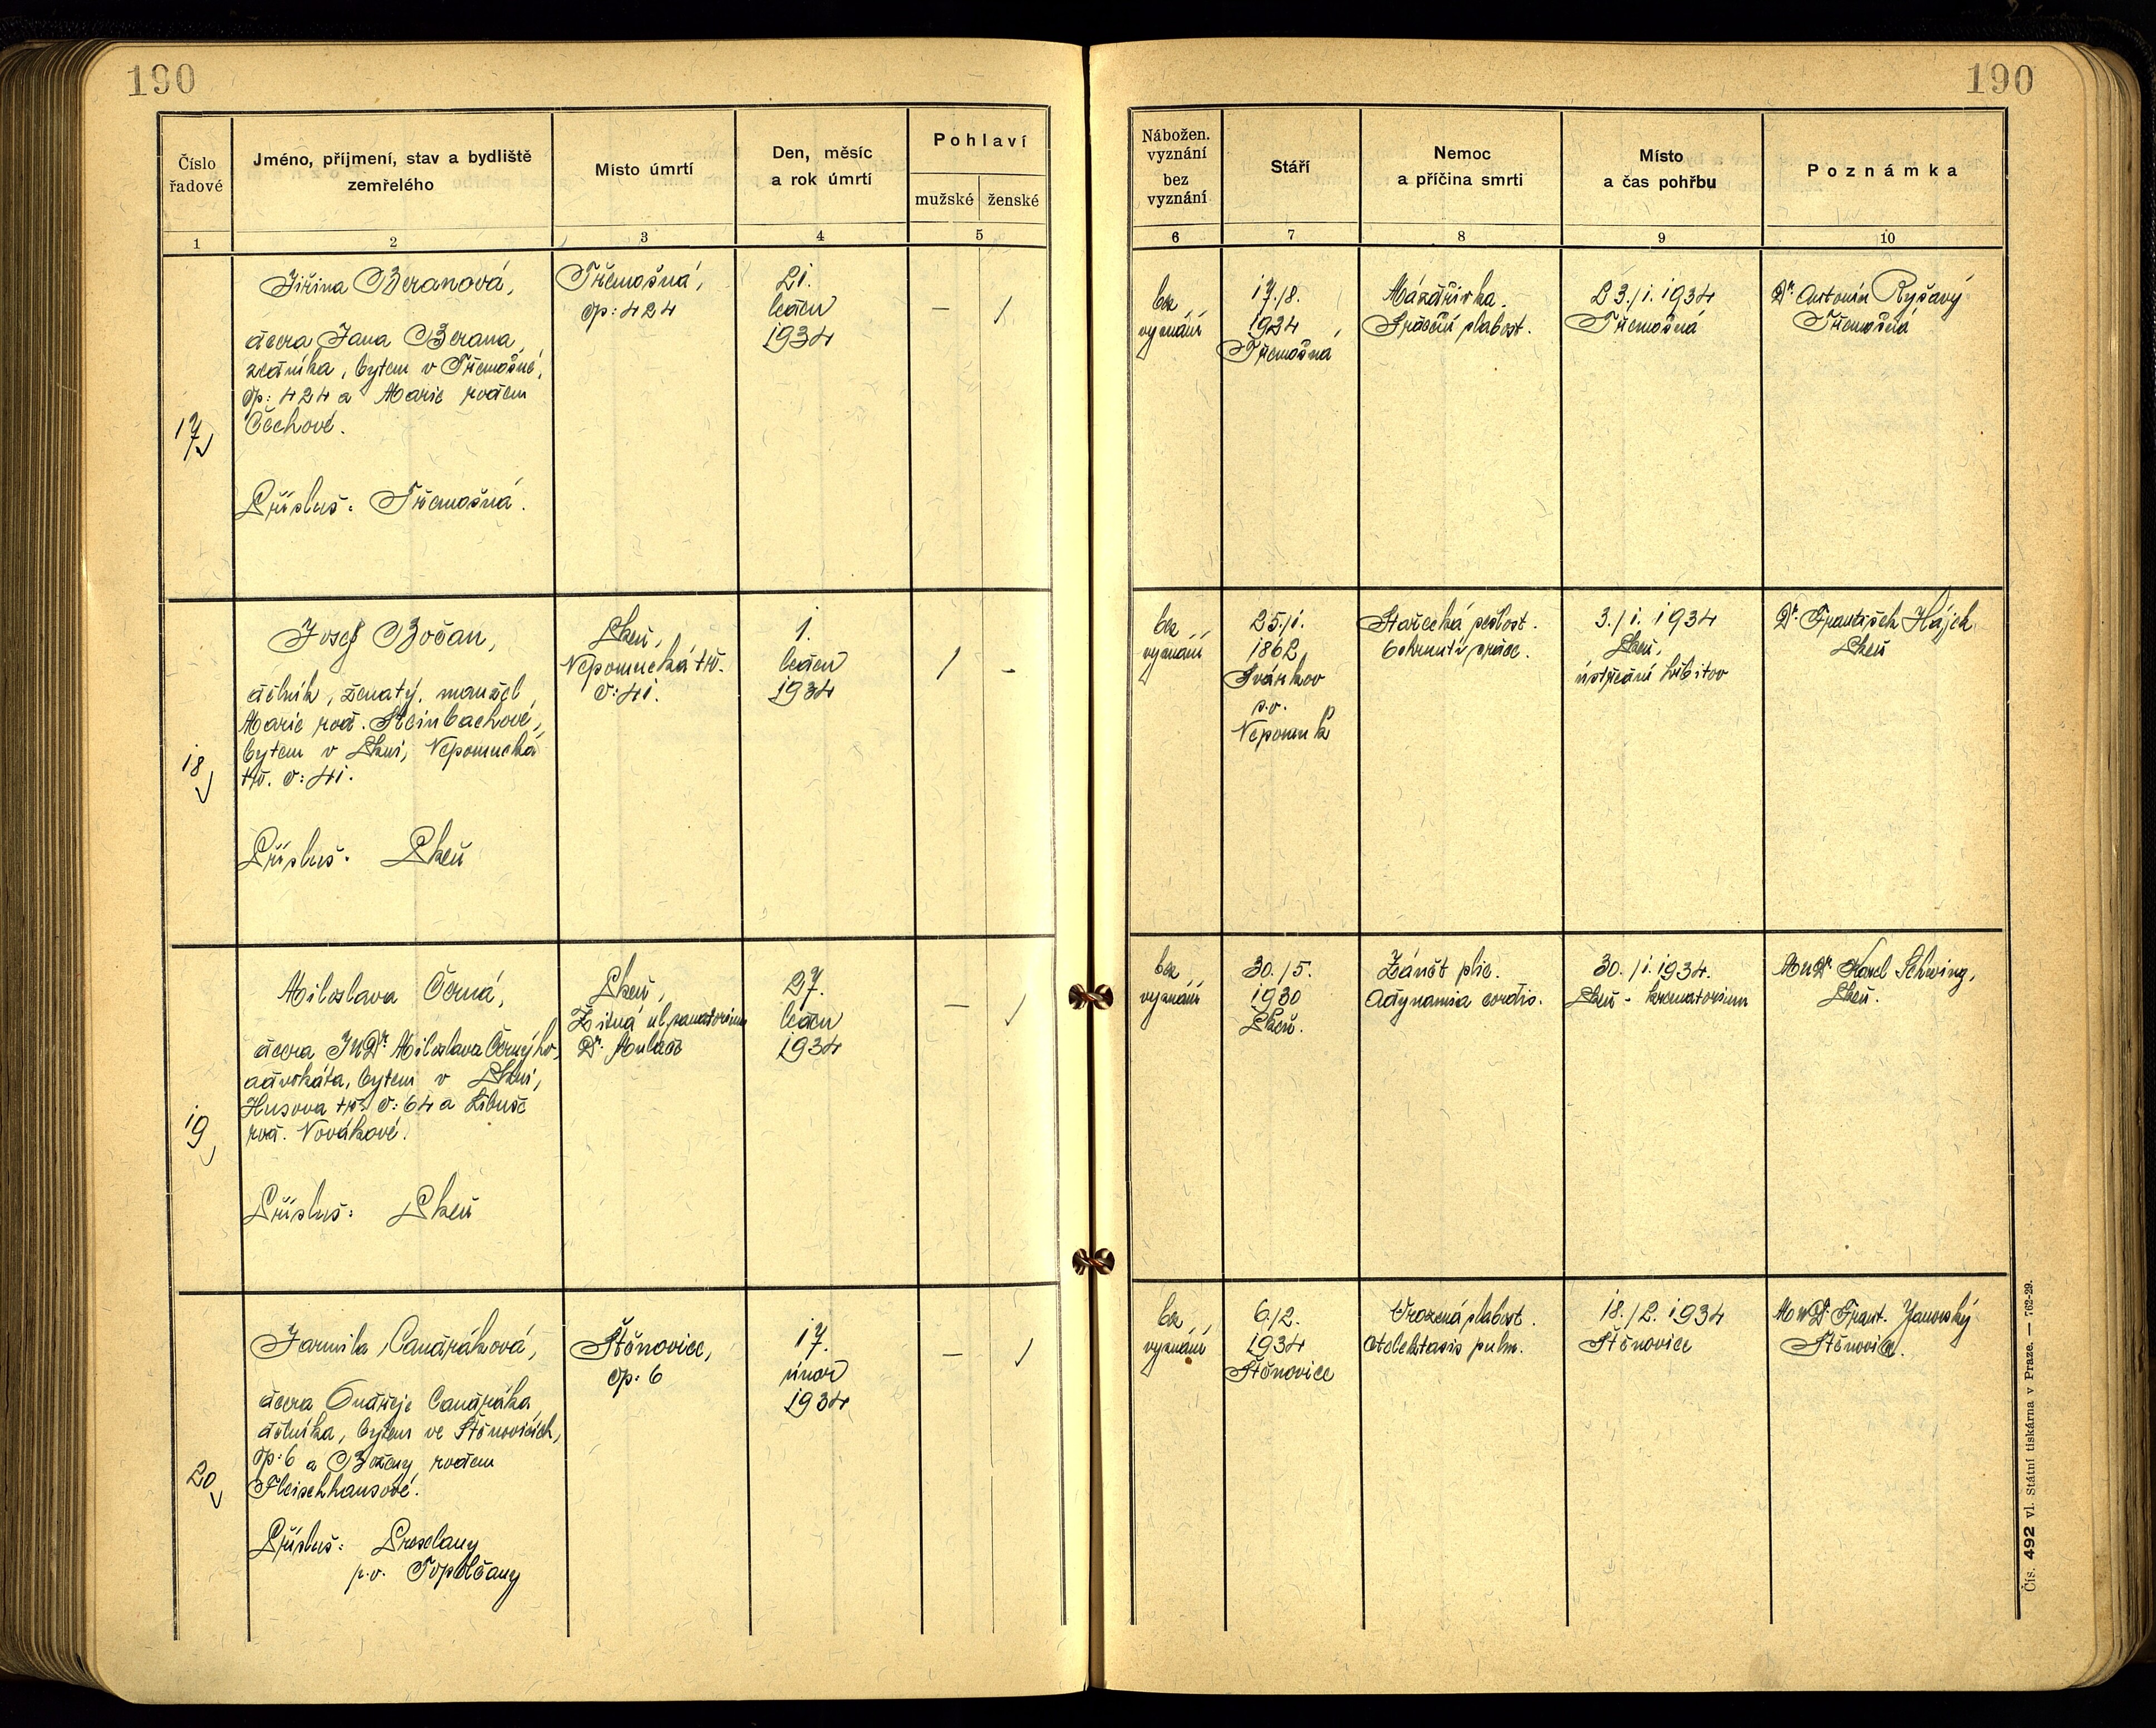 190
190
Číslo
řadové
Jméno, příjmení, stav a bydliště
zemřelého
Místo úmrtí
Den, měsíc
a rok úmrtí
Pohlaví
mužské
ženské
Nábožen.
vyznání
bez
vyznání
Stáří
Nemoc
a příčina smrti
Místo
a čas pohřbu
Poznámka
1
2
3
4
5
6
7
8
9
10
17
Jiřina Beranová,
dcera Jana Berana,
zedníka, bytem v Třemošné,
čp: 424 a Marie rodem
Čechové.
Přísluš: Třemošná.
Třemošná,
čp: 424
21.
leden
1934
–
/
bez
vyznání
17./8.
1934
Třemošná
Srdeční slabost.
23./1. 1934
Třemošná
Dr. Antonín Ryšavý
Třemošná
18
Josef Bočan,
dělník, ženatý, manžel
Marie rod. Steinbachové,
bytem v Plzni, Nepomucká
tř. č: 41.
Přísluš: Plzeň
Plzeň,
Nepomucká tř.
č: 41.
1.
leden
1934
/
-
bez
vyznání
25./1.
1862,
Svárkov
p. o.
Nepomuk
Stařecká sešlost.
Ochrnutí srdce.
3./1. 1934
Plzeň,
ústřední hřbitov
Dr. František Hájek
Plzeň
19
Miloslava Černá,
dcera JUDr Miloslava Černýho,
advokáta, bytem v Plzni,
Husova tř. č: 64 a Libuše
rod. Novákové.
Přísluš: Plzeň
Plzeň,
Žitná ul, sanatorium
Dr. Mulač
27.
leden
1934
–
/
bez
vyznání
30./5.
1930
Plzeň.
Zánět plic.
Adynamia cordis.
30./1. 1934.
Plzeň - krematorium
MUDr Karel Schwing,
Plzeň.
20
Jarmila Candráková,
dcera Ondřeje Candráka,
dělníka, bytem ve Štěnovicích,
čp: 6 a Boženy rodem
Fleischhansové.
Přísluš: Preselany
p. o. Topolčany
Štěnovice,
čp: 6
17.
únor
1934
–
/
bez
vyznání
6/2.
1934
Štěnovice
Vrozená slabost.
Atelektasis pulm.
18./2. 1934
Štěnovice
MUDr. Frant. Janovský
Štěnovice.
Čís. 492 vl. Státní tiskárna v Praze. — 762-29.